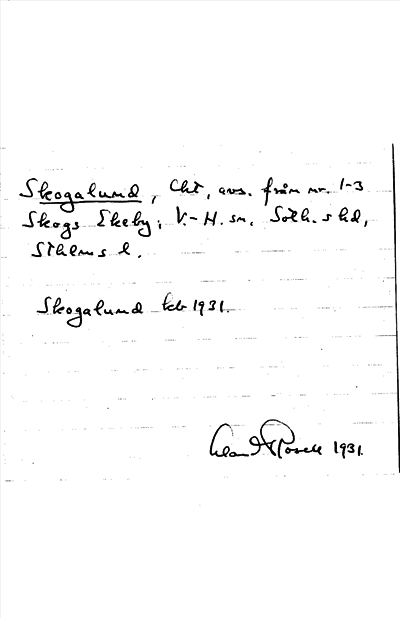 Skogalund, Cht, avs. från nr. 1-3
Skogs Ekeby, V.-H. sn, Soth. s hd,
Sthlms l.
Skogalund kb 1931.
Rosell 1931.